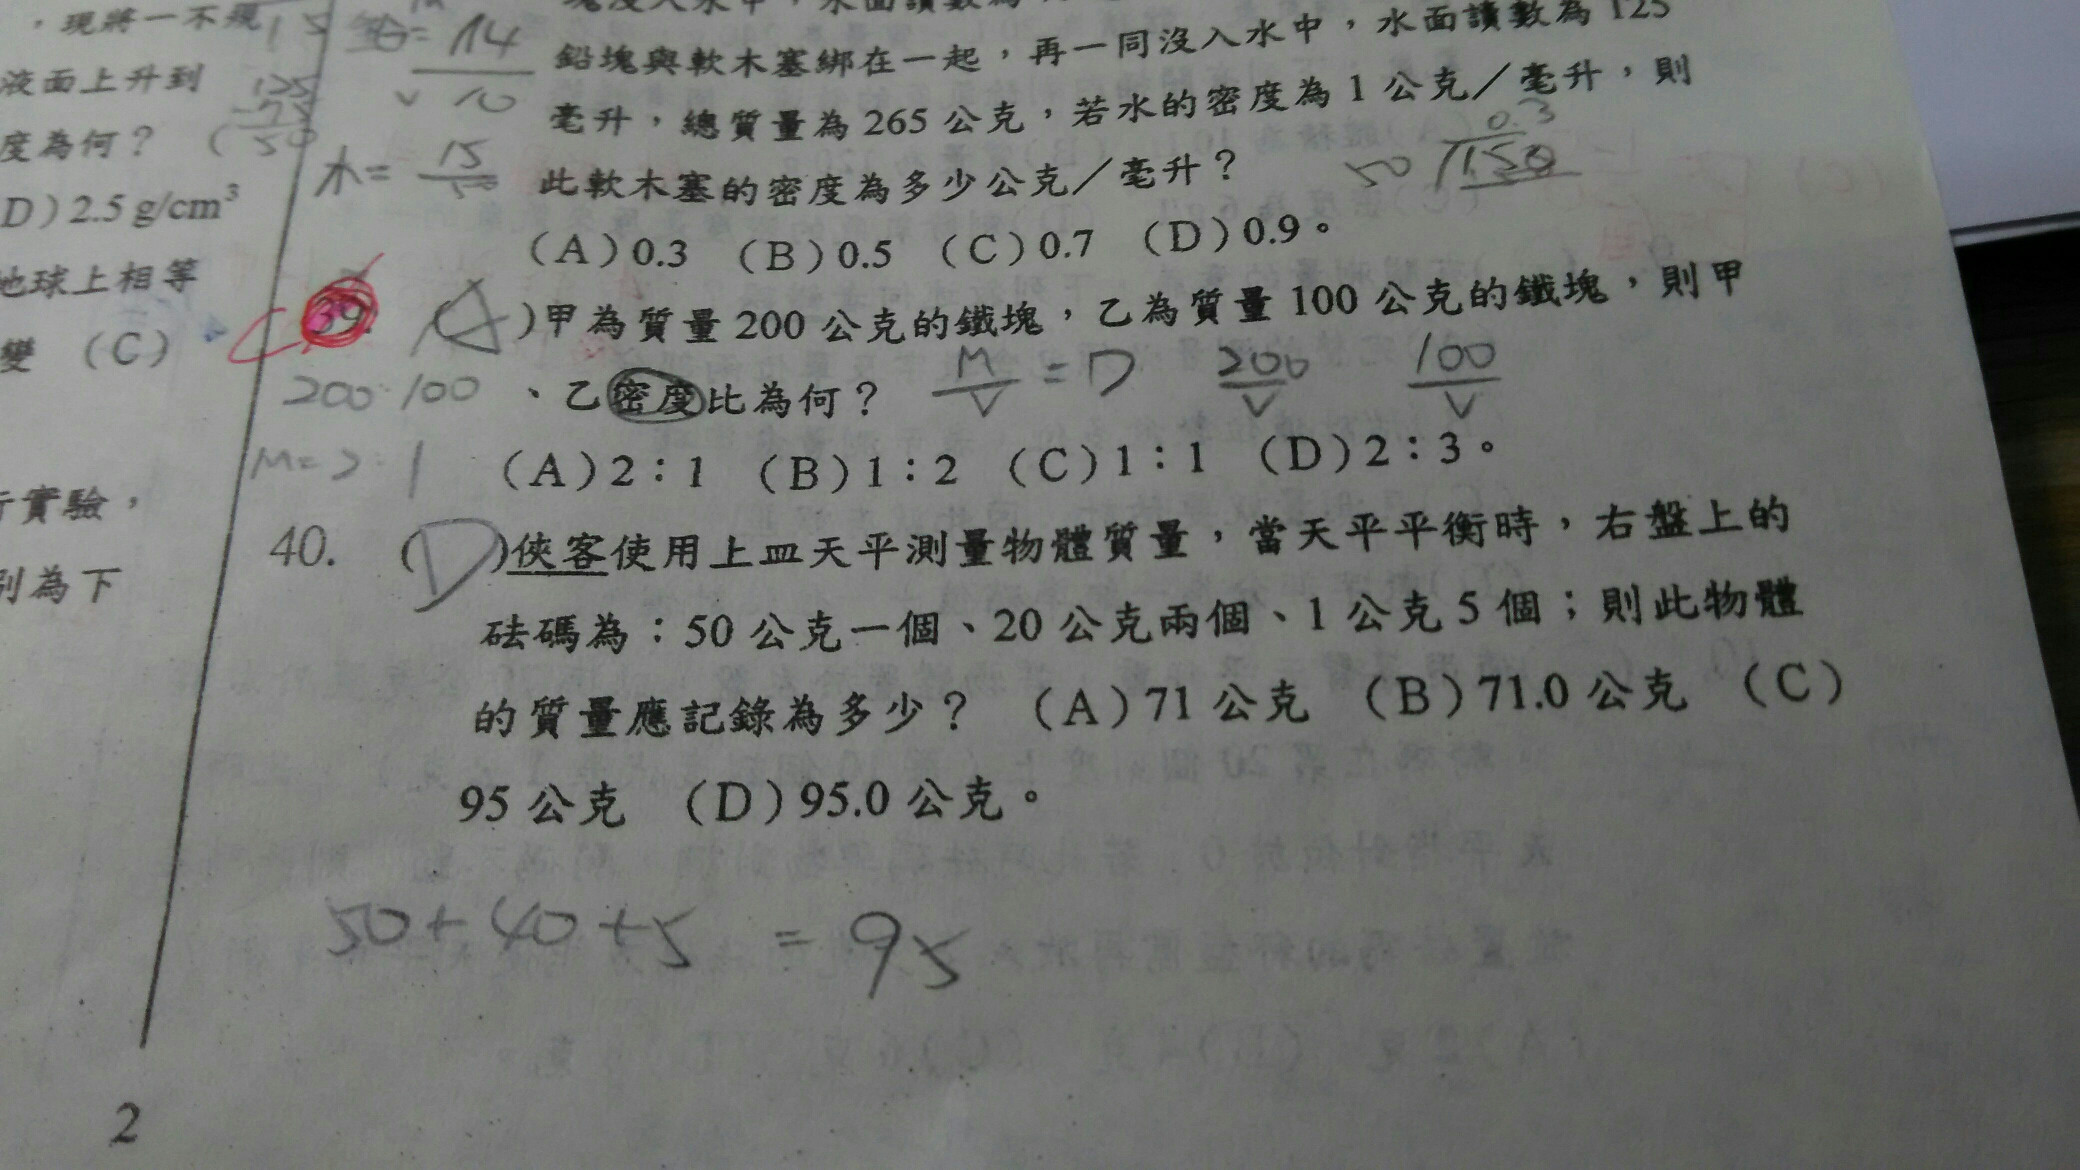 ，現將一不規
液面上升到
度為何？
D）2.5 g/cm³
地球上相等
變 （C）
行實驗，
別為下
15
125
-75
50
鉛=14
V 10
木=15
50
鉛塊與軟木塞綁在一起，再一同沒入水中，水面讀數為 125
毫升，總質量為 265 公克，若水的密度為 1 公克／毫升，則
此軟木塞的密度為多少公克／毫升？
0.3
50 150
（A）0.3 （B）0.5 （C）0.7 （D）0.9。
C 39. （A）甲為質量 200 公克的鐵塊，乙為質量 100 公克的鐵塊，則甲
200 : 100 、乙密度比為何？ M/V = D 200/V 100/V
M= 2 : 1 （A）2：1 （B）1：2 （C）1：1 （D）2：3。
40. （D）俠客使用上皿天平測量物體質量，當天平平衡時，右盤上的
砝碼為：50 公克一個、20 公克兩個、1 公克 5 個；則此物體
的質量應記錄為多少？ （A）71 公克 （B）71.0 公克 （C）
95 公克 （D）95.0 公克。
50+40+5 = 95
2